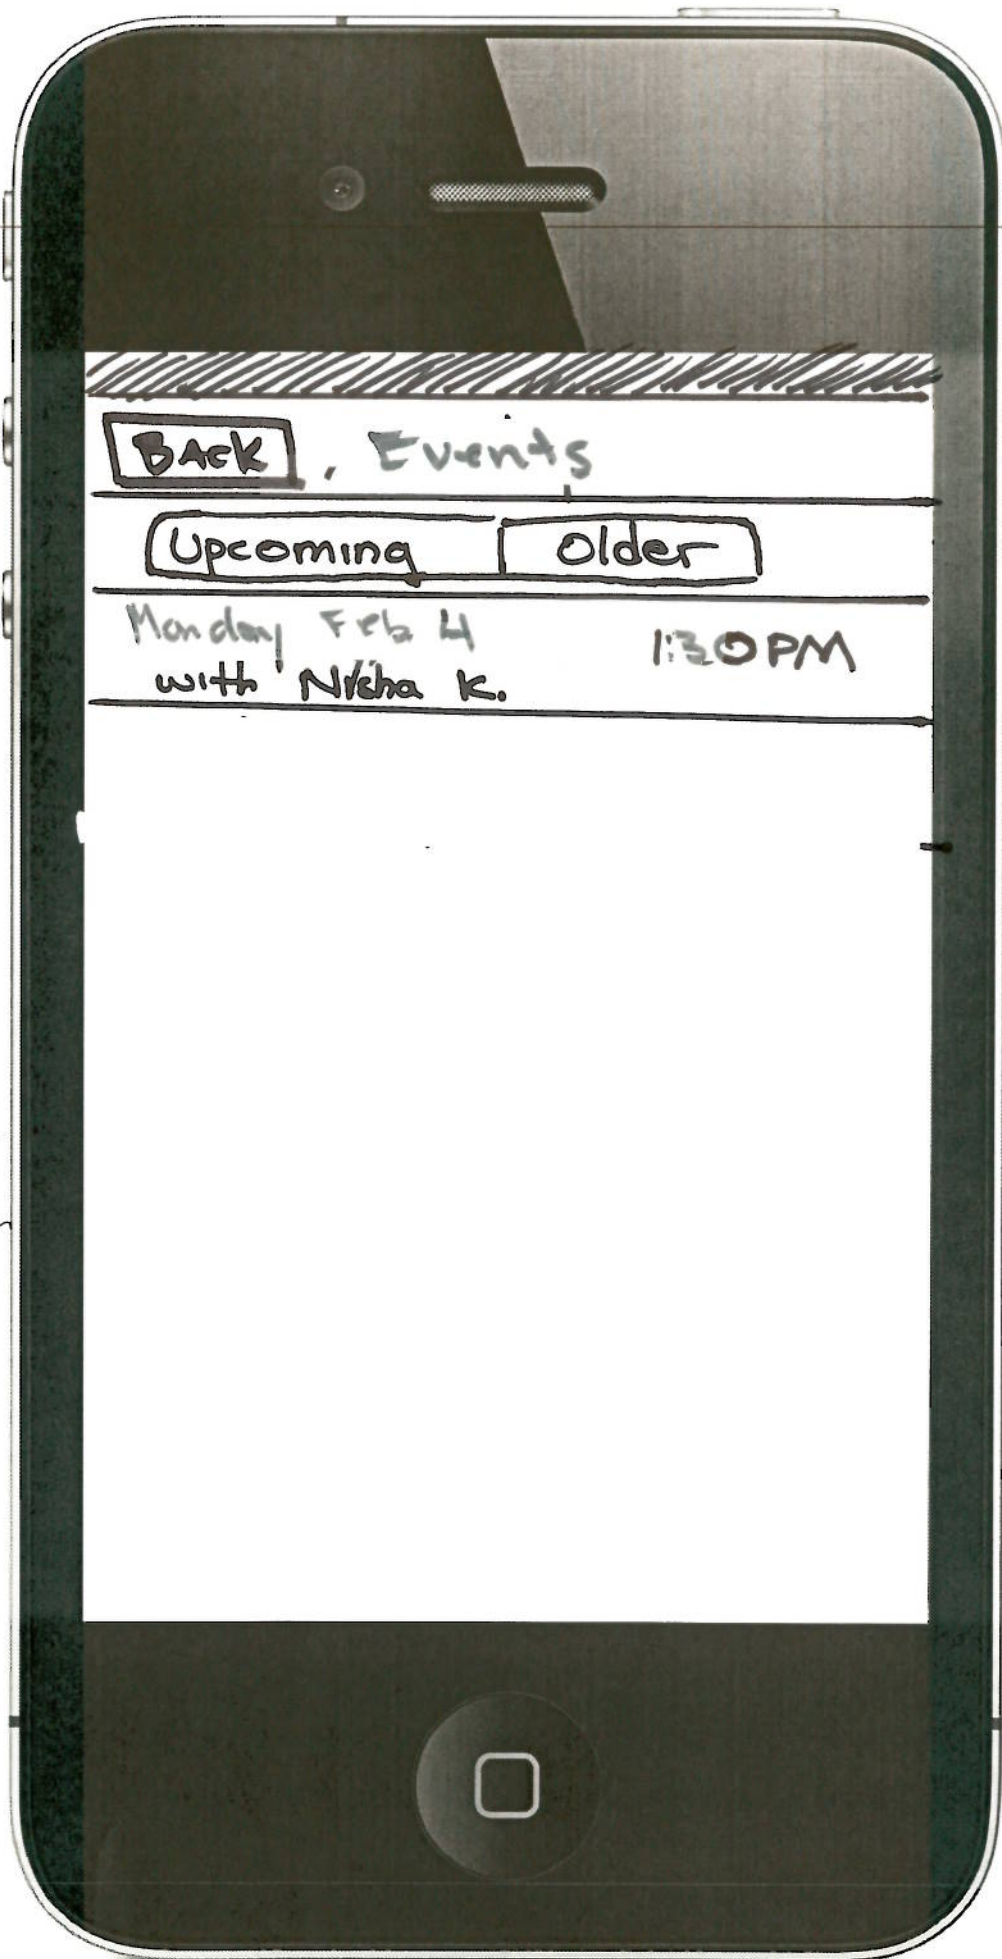 BACK Events
Upcoming Older
Monday Feb 4 1:30 PM
with Nisha K.